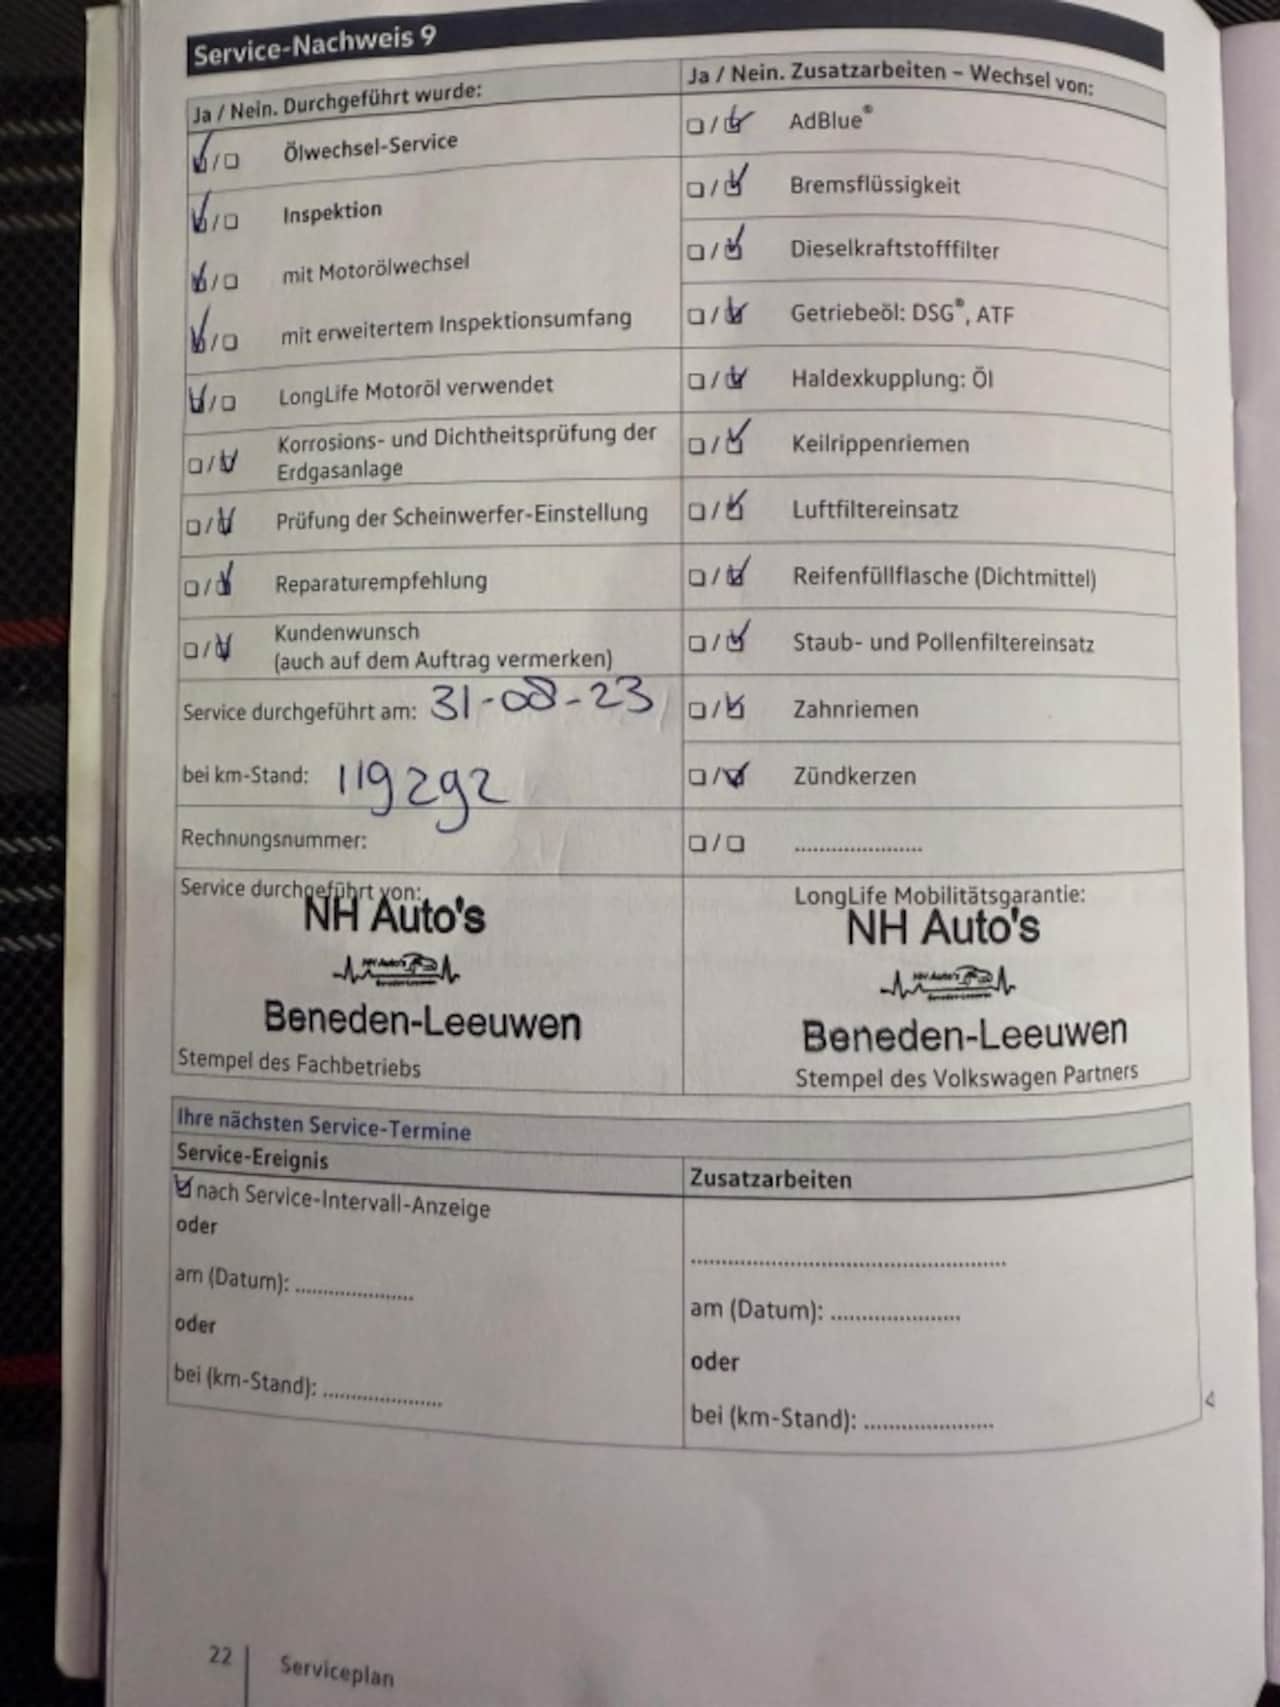 Service-Nachweis 9
Ja / Nein. Durchgeführt wurde:
Ölwechsel-Service
Inspektion
mit Motorölwechsel
mit erweitertem Inspektionsumfang
LongLife Motoröl verwendet
Korrosions- und Dichtheitsprüfung der
Erdgasanlage
Prüfung der Scheinwerfer-Einstellung
Reparaturempfehlung
Kundenwunsch
(auch auf dem Auftrag vermerken)
Service durchgeführt am: 31-08-23
bei km-Stand: 119292
Rechnungsnummer:
Service durchgeführt von:
NH Auto's
NH Auto's
Beneden-Leeuwen
Beneden-Leeuwen
Stempel des Fachbetriebs
Ja / Nein. Zusatzarbeiten – Wechsel von:
AdBlue®
Bremsflüssigkeit
Dieselkraftstofffilter
Getriebeöl: DSG®, ATF
Haldexkupplung: Öl
Keilrippenriemen
Luftfiltereinsatz
Reifenfüllflasche (Dichtmittel)
Staub- und Pollenfiltereinsatz
Zahnriemen
Zündkerzen
......................
LongLife Mobilitätsgarantie:
NH Auto's
NH Auto's
Beneden-Leeuwen
Beneden-Leeuwen
Stempel des Volkswagen Partners
Ihre nächsten Service-Termine
Service-Ereignis
nach Service-Intervall-Anzeige
oder
am (Datum): ......................
oder
bei (km-Stand): ......................
Zusatzarbeiten
......................................................
am (Datum): ......................
oder
bei (km-Stand): ......................
22
Serviceplan